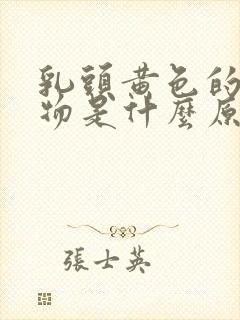 乳頭黃色的
物是什麼原
張士英